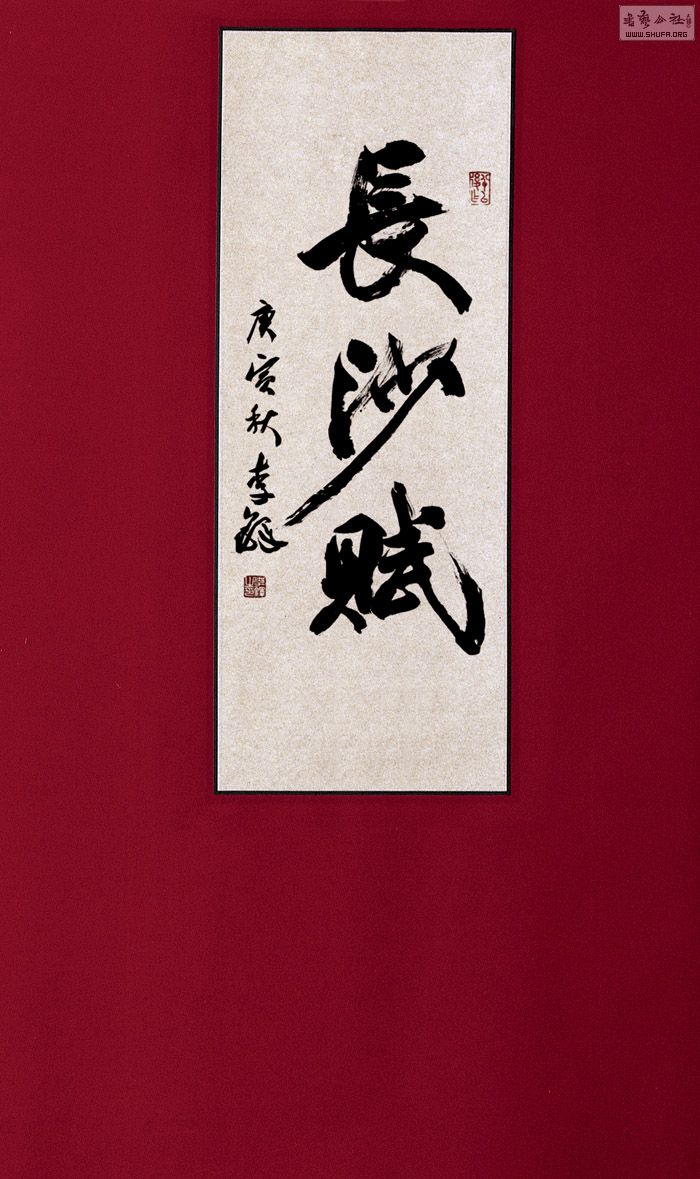 長沙賦
庚寅秋 李鐸
書藝公社
WWW.SHUFA.ORG